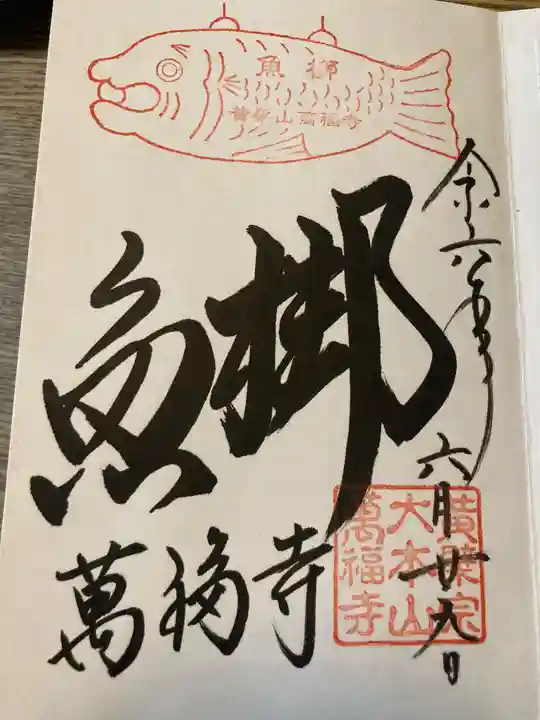 魚梛
黄檗山萬福寺
魚梛
萬福寺
令六年
六月廿九日
黄檗宗
大本山
萬福寺